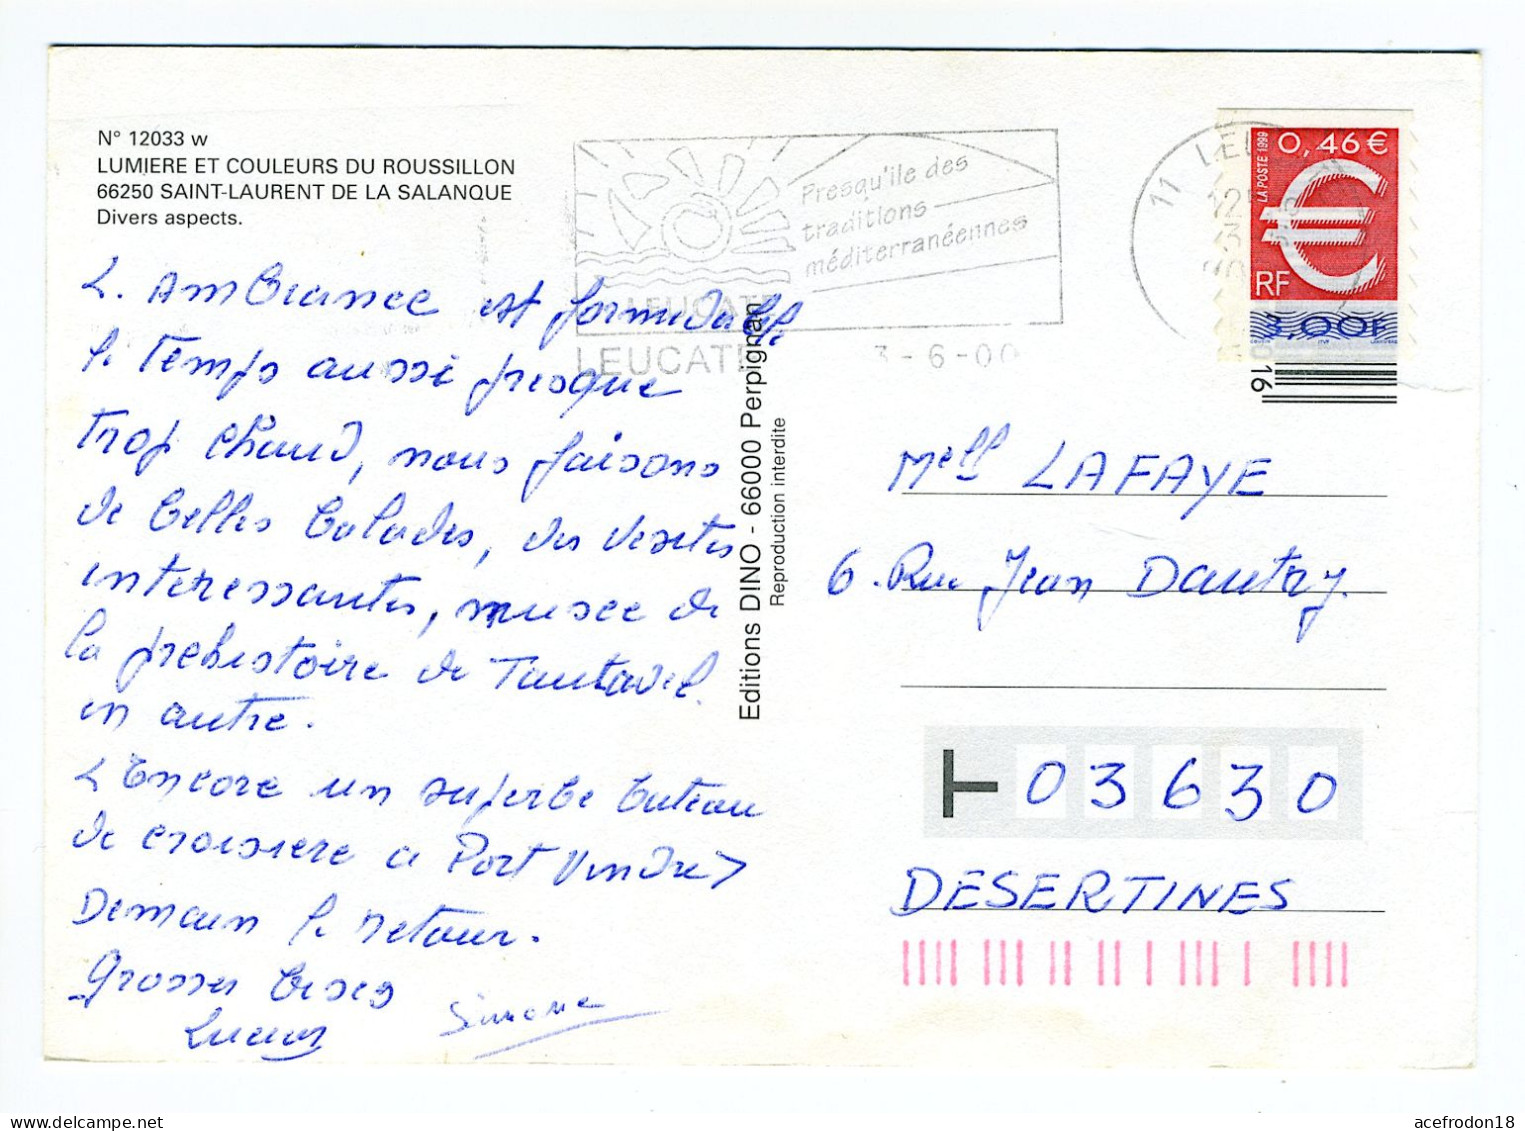 N° 12033 w
LUMIERE ET COULEURS DU ROUSSILLON
66250 SAINT-LAURENT DE LA SALANQUE
Divers aspects.
L. Ambiance est formidable
le Temps aussi presque
Trop chaud, nous faisons
de belles balades, des visites
interessantes, musee de
la prehistoire de Tautavel.
en autre.
Encore un superbe bateau
de croisiere a Port Vendres
Demain le retour.
Grosses bises
Lucien
Simone
Presqu'ile des
traditions
méditerranéennes
LEUCATE
LEUCATE
3-6-00
11 LEU
Editions DINO - 66000 Perpignan
Reproduction interdite
LA POSTE 1999
0,46 €
RF
3,00F
16
Melle LAFAYE
6. Rue Jean Dautry.
03630
DESERTINES
acefrodon18